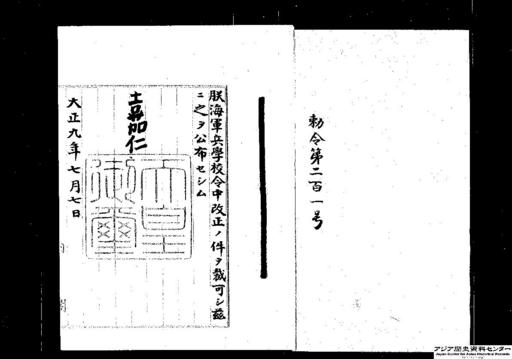 勅令第二百一号
朕海軍兵学校令中改正ノ件ヲ裁可シ茲
ニ之ヲ公布セシム
嘉仁
天皇御璽
大正九年七月七日
アジア歴史資料センター
Japan Center for Asian Historical Records